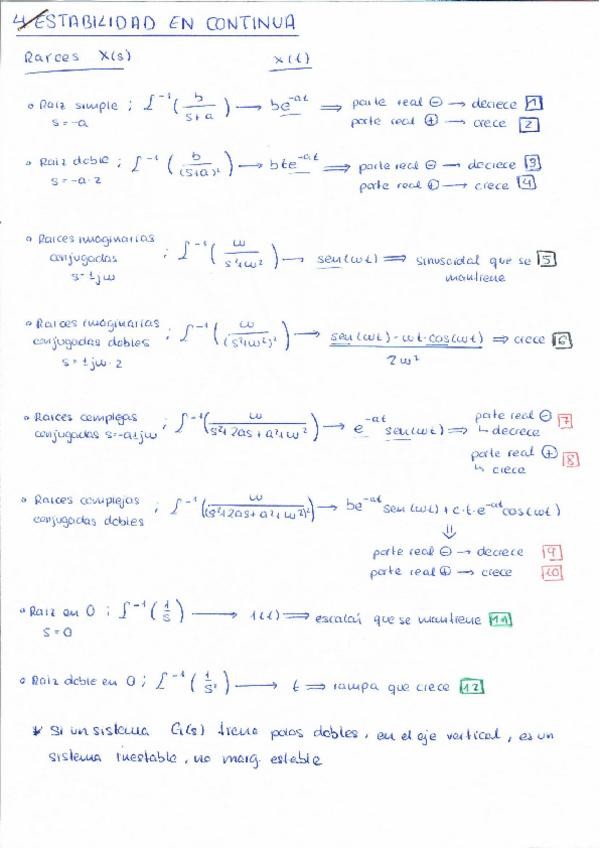 4/ ESTABILIDAD EN CONTINUA
Raíces X(s) x(t)
• Raiz simple ; L⁻¹(b/(s+a)) → be^-at ⇒ parte real ⊖ → decrece [1]
s=-a parte real ⊕ → crece [2]
• Raiz doble ; L⁻¹(b/(s+a)²) → bte^-at ⇒ parte real ⊖ → decrece [3]
s=-a·2 parte real ⊕ → crece [4]
• Raices imaginarias
conjugadas ; L⁻¹(ω/(s²+ω²)) → sen(ωt) ⇒ sinusoidal que se [5]
s=±jω mantiene
• Raices imaginarias
conjugadas dobles ; L⁻¹(ω/(s²+ω²)²) → (sen(ωt)-ωt·cos(ωt))/2ω² ⇒ crece [6]
s=±jω·2
• Raices complejas ; L⁻¹(ω/(s²+2as+a²+ω²)) → e^-at sen(ωt) ⇒ parte real ⊖ [7]
conjugadas s=-a±jω ↳ decrece
parte real ⊕ [8]
↳ crece
• Raices complejas ; L⁻¹(ω/(s²+2as+a²+ω²)²) → be^-at sen(ωt)+c·t·e^-at cos(ωt)
conjugadas dobles ⇓
parte real ⊖ → decrece [9]
parte real ⊕ → crece [10]
• Raiz en 0 ; L⁻¹(1/s) → 1(t) ⇒ escalar que se mantiene [11]
s=0
• Raiz doble en 0 ; L⁻¹(1/s²) → t ⇒ rampa que crece [12]
* Si un sistema G(s) tiene polos dobles, en el eje vertical, es un
sistema inestable, no marg. estable